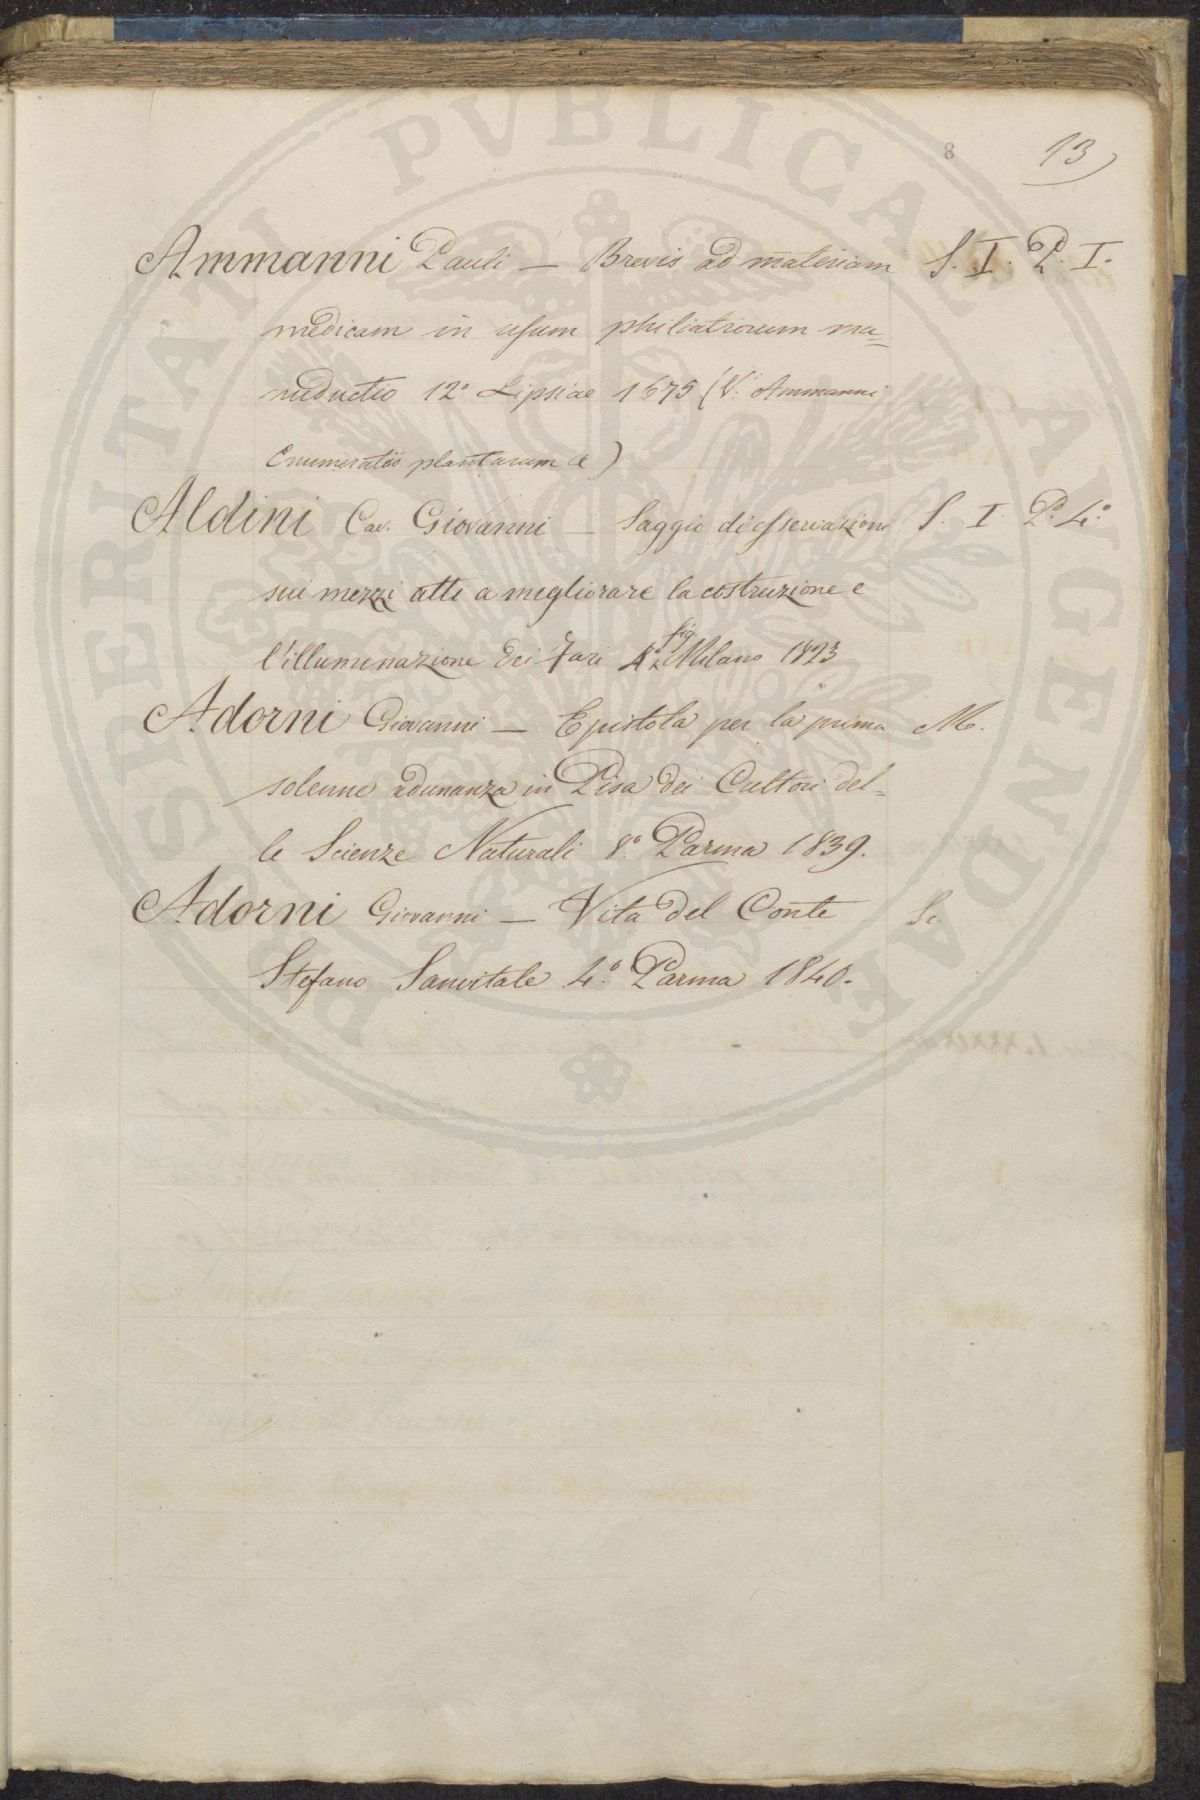 8 13
Ammanni Pauli — Brevis ad materiam S. I. P. I.
medicam in usum philiatrorum ma=
nuductio 12° Lipsiae 1675 (V. Ammanni
Enumeratio plantarum &)
Aldini Cav. Giovanni — Saggio di osservazione S. I. P. 4°
sui mezzi atti a migliorare la costruzione e
l'illuminazione dei Fari 4° fig. Milano 1823
Adorni Giovanni — Epistola per la prima M.
solenne adunanza in Pisa dei Cultori del=
le Scienze Naturali 8° Parma 1839.
Adorni Giovanni — Vita del Conte Sc.
Stefano Sanvitale 4° Parma 1840.
PROSPERITATI PVBLICAE AVGENDAE